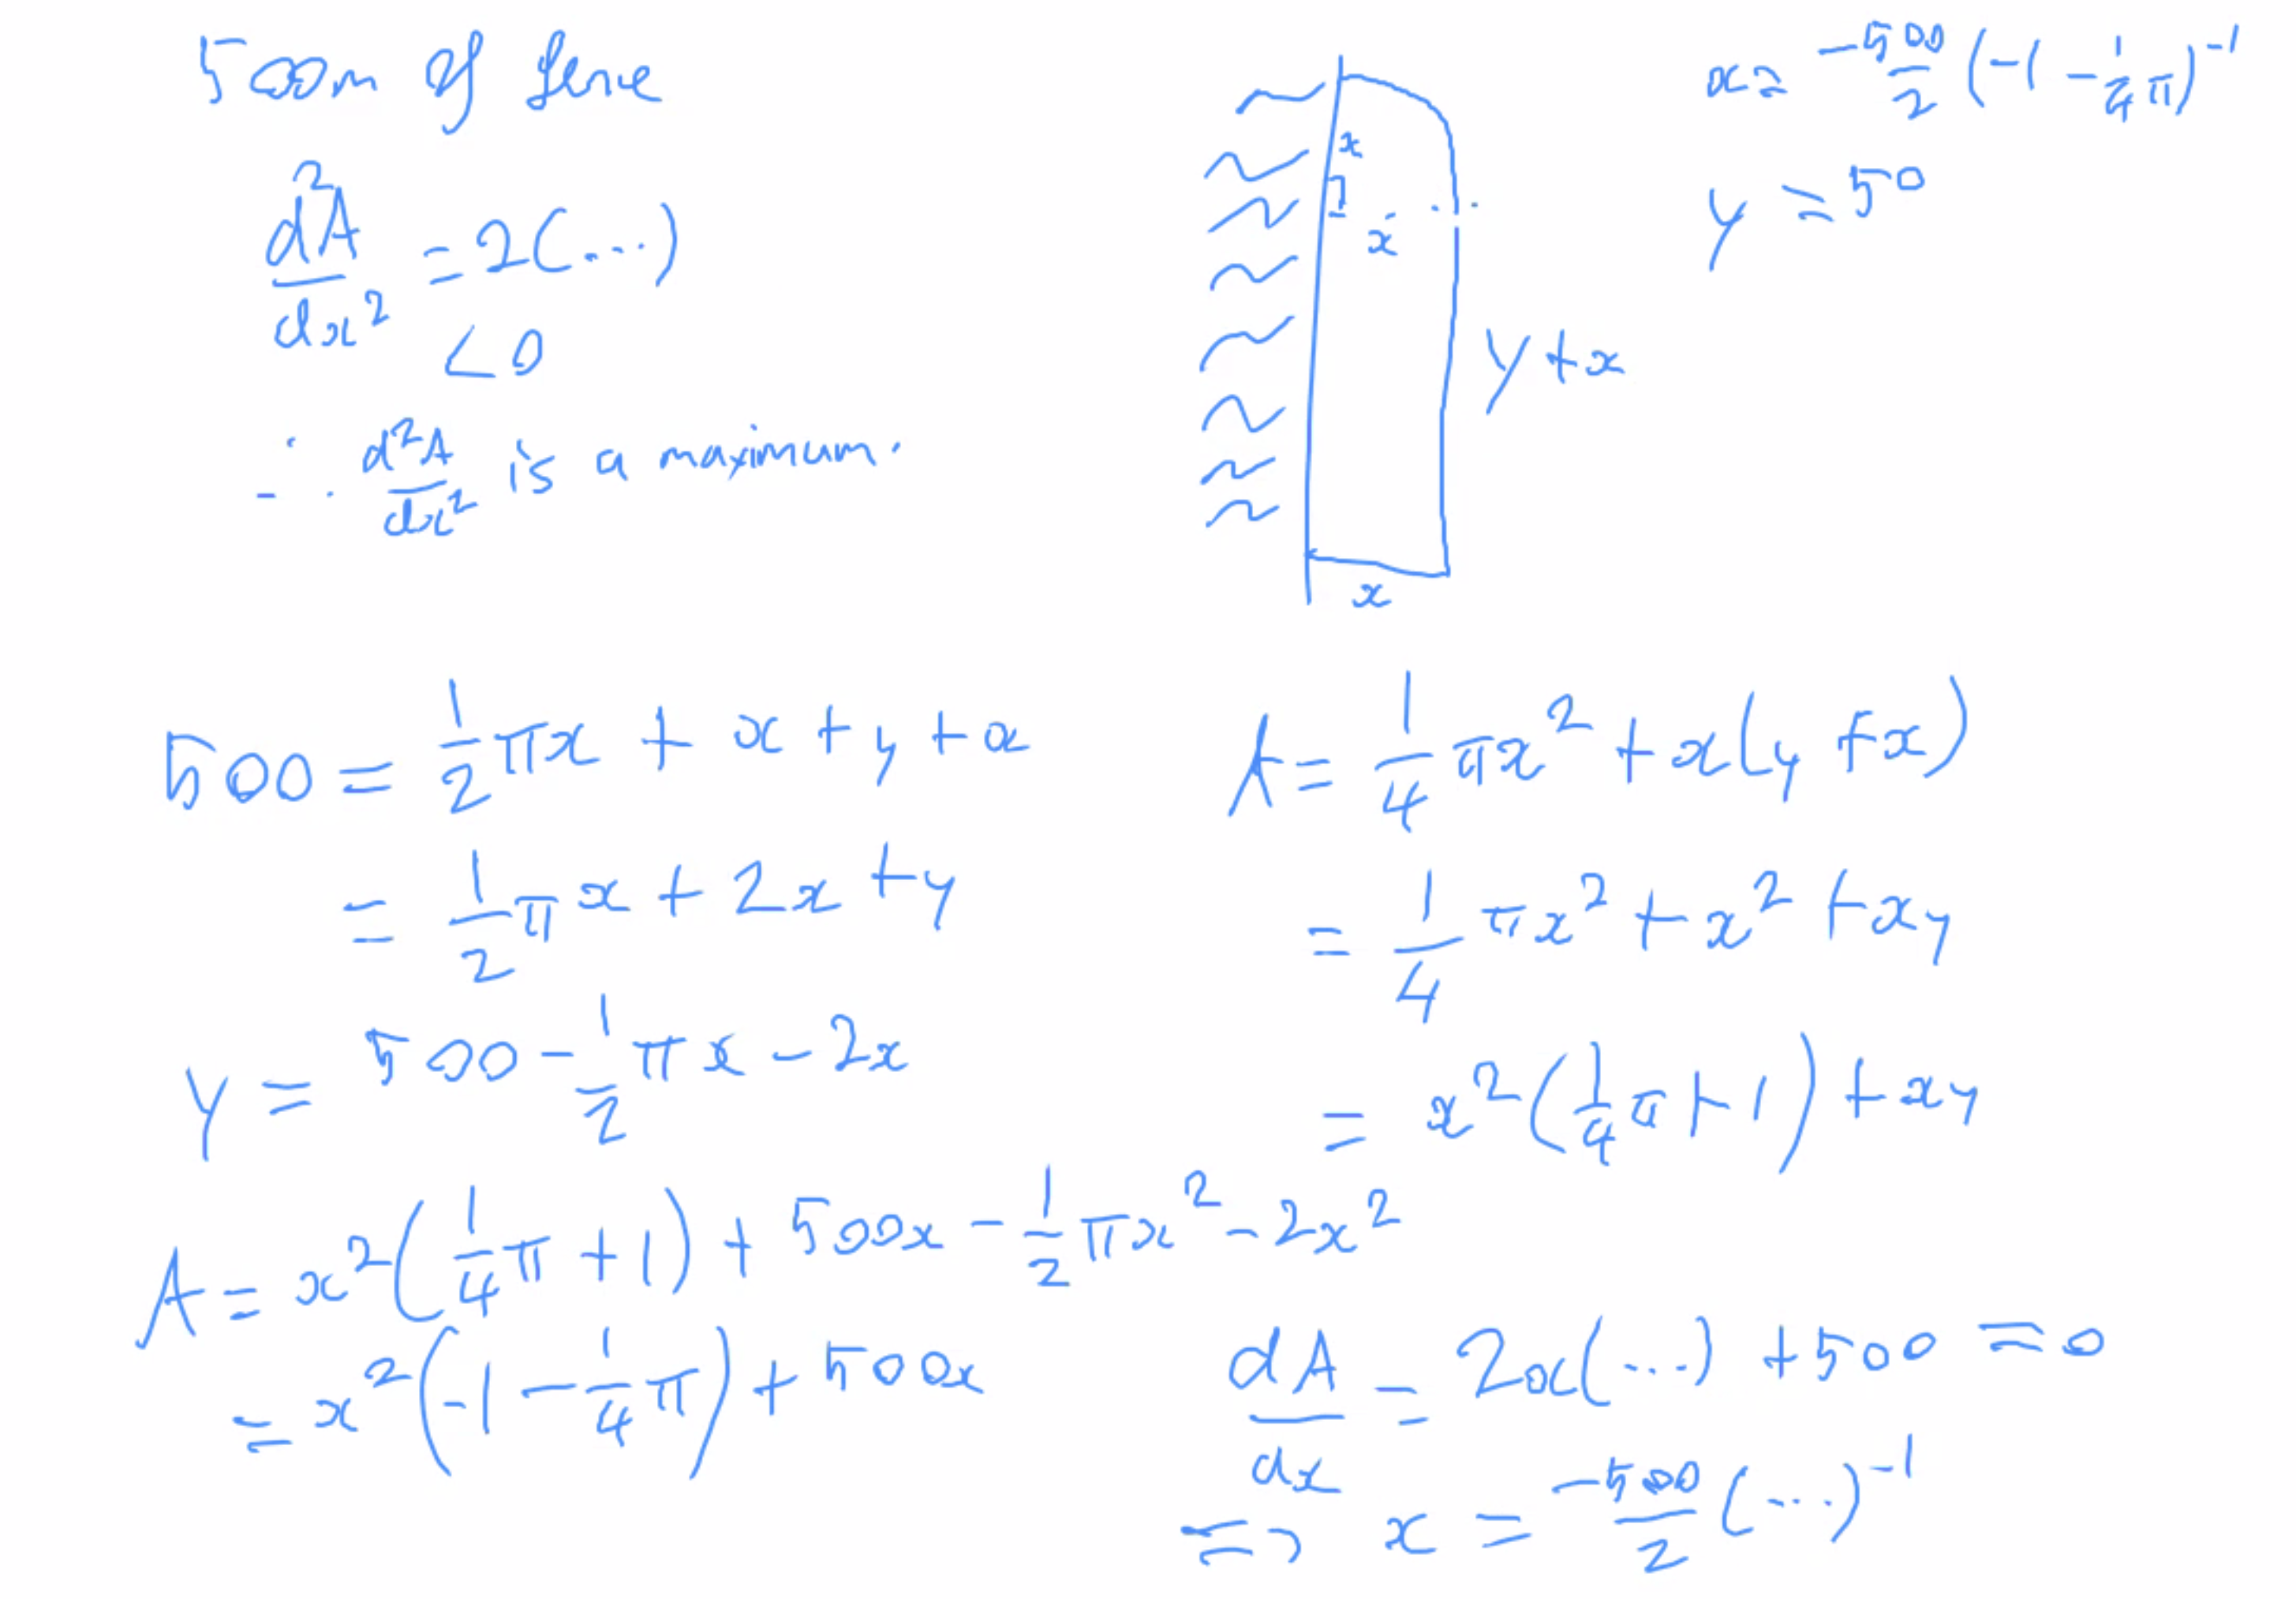 500m of fence
d²A/dx² = 2(...)
< 0
∴ d²A/dx² is a maximum.
x
x
y + x
x
x = -500/2 (-1 - 1/4 π)⁻¹
y = 50
500 = 1/2 πx + x + y + x
= 1/2 πx + 2x + y
y = 500 - 1/2 πx - 2x
A = 1/4 πx² + x(y + x)
= 1/4 πx² + x² + xy
= x²(1/4 π + 1) + xy
A = x²(1/4 π + 1) + 500x - 1/2 πx² - 2x²
= x²(-1 - 1/4 π) + 500x
dA/dx = 2x(...) + 500 = 0
⇒ x = -500/2 (...)⁻¹